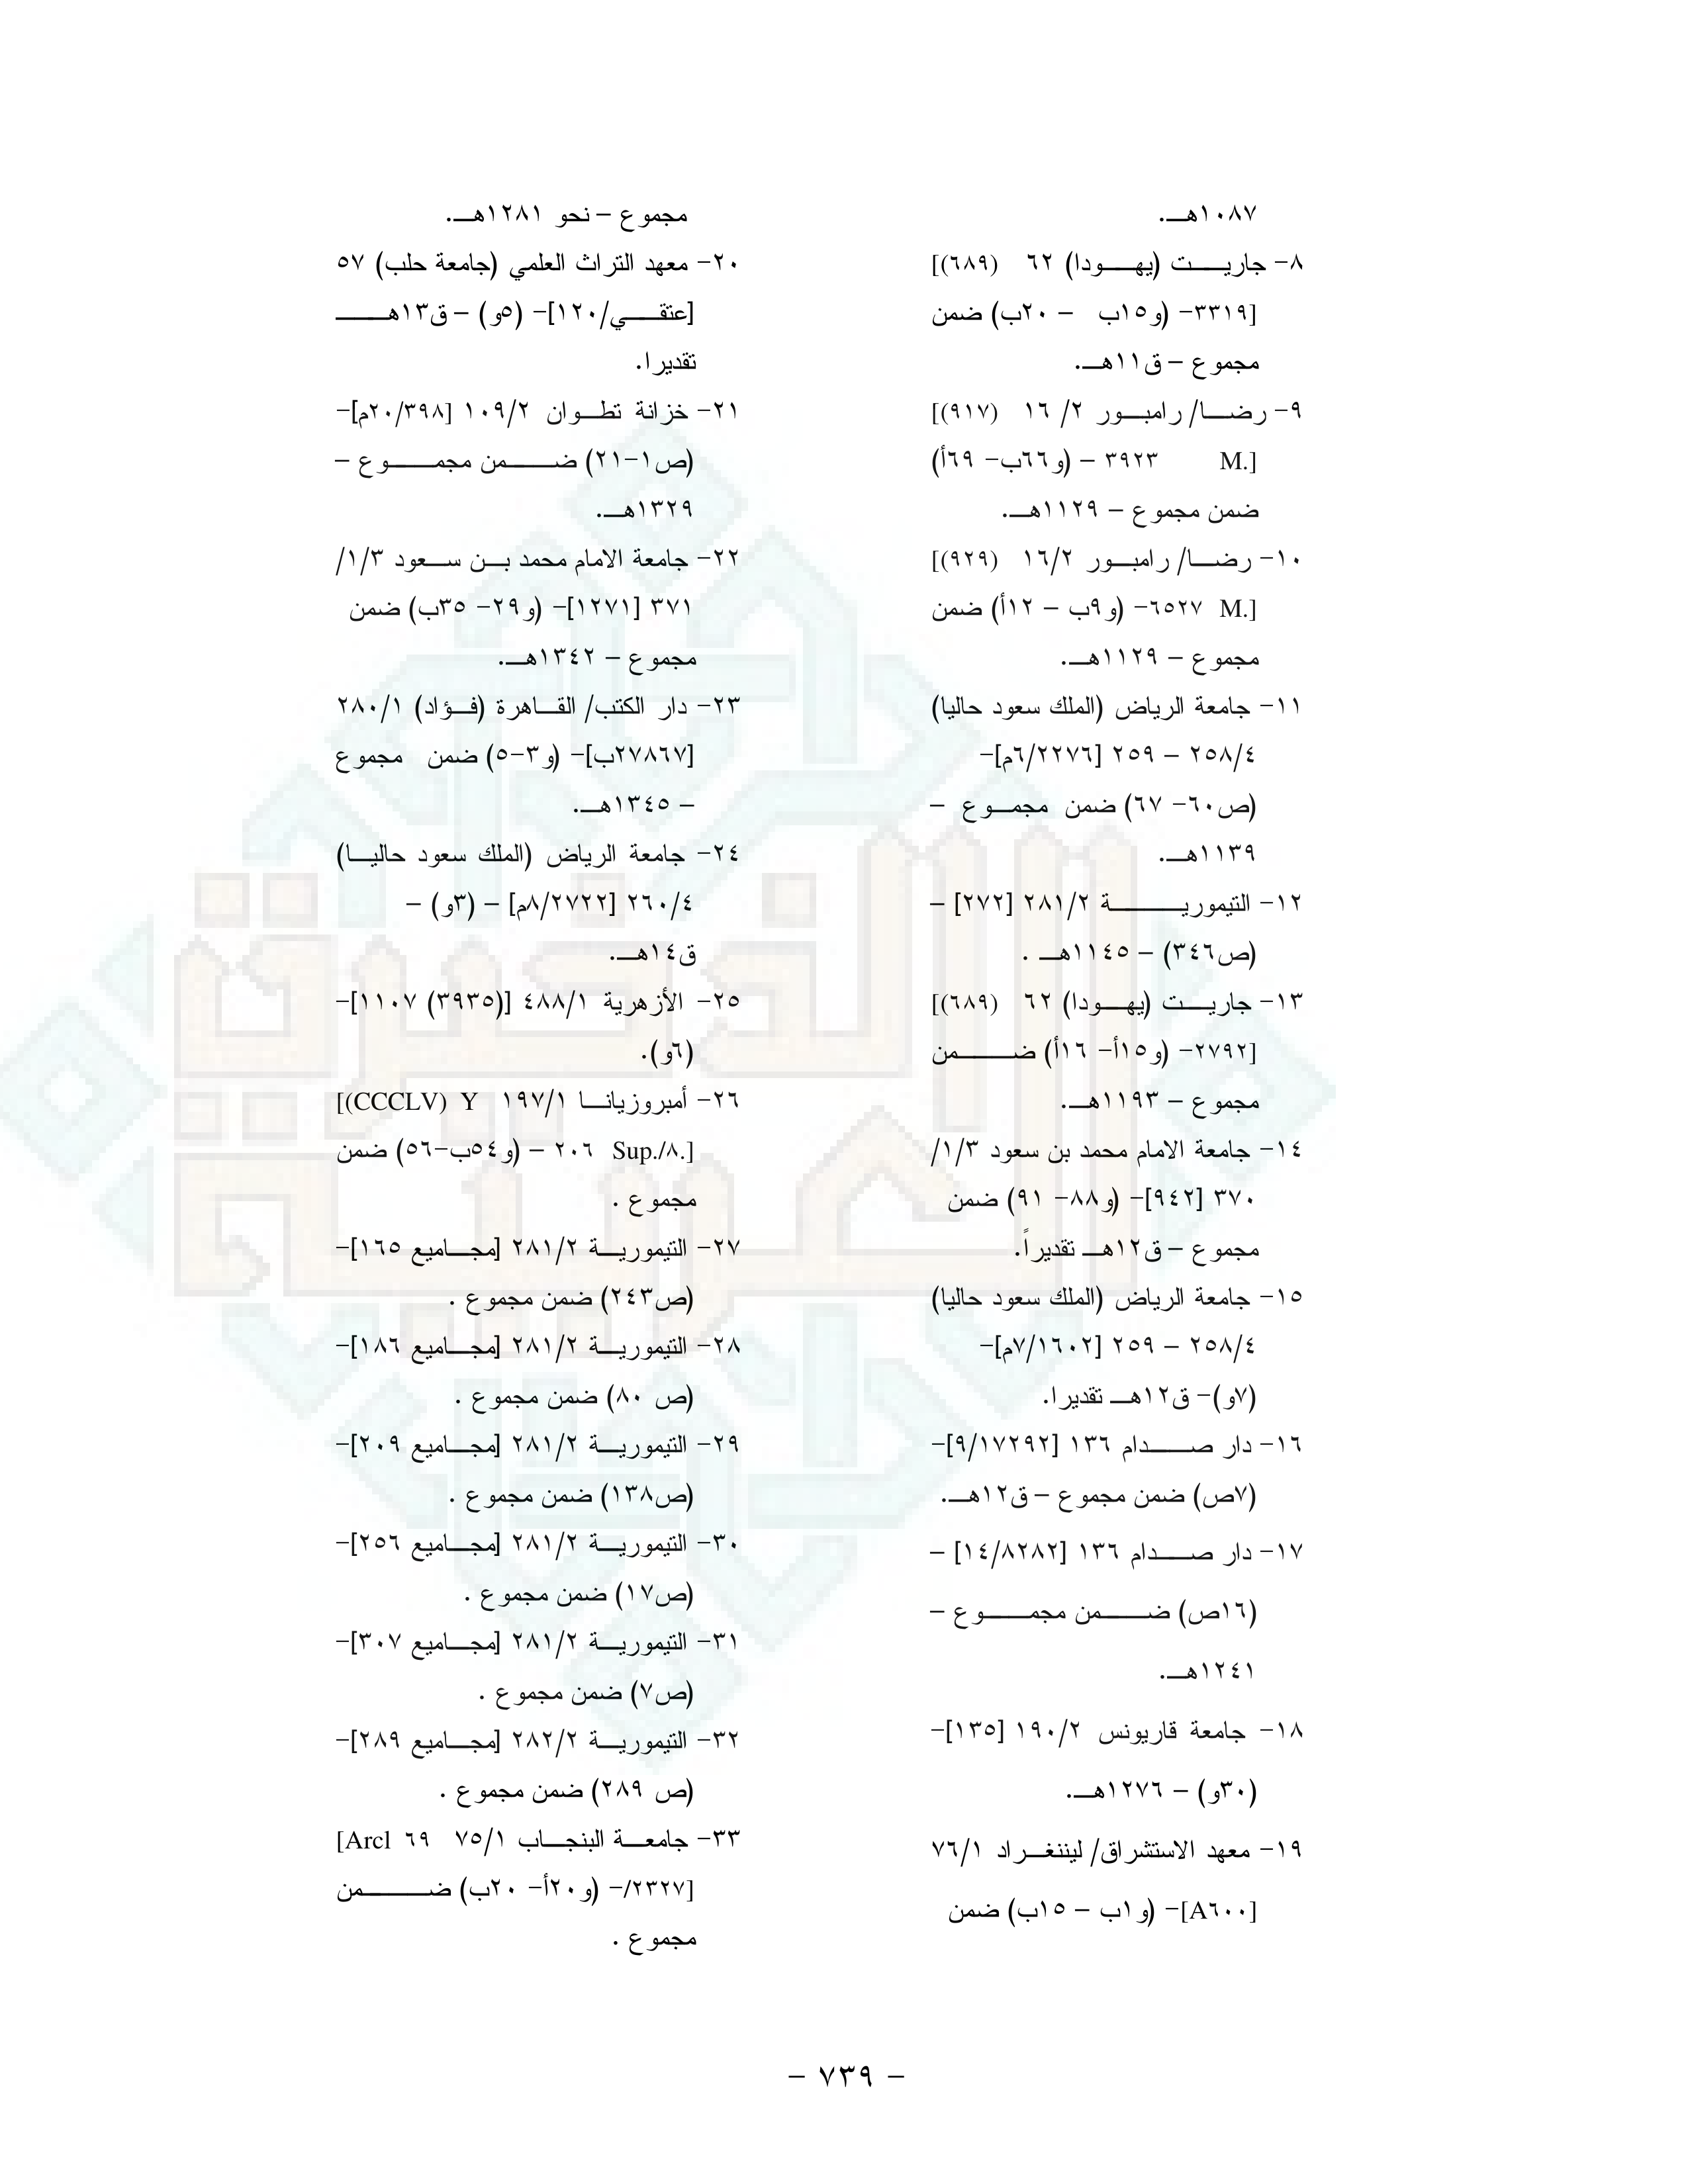 ١٠٨٧هـ.
٨- جاريت (يهودا) ٦٢ (٦٨٩)]
[٣٣١٩- (و١٥ب – ٢٠ب) ضمن
مجموع – ق١١هـ.
٩- رضا/ رامبور ٢/ ١٦ (٩١٧)]
[.M ٣٩٢٣ – (و٦٦ب- ٦٩أ)
ضمن مجموع – ١١٢٩هـ.
١٠- رضا/ رامبور ١٦/٢ (٩٢٩)]
[.M ٦٥٢٧- (و٩ب – ١٢أ) ضمن
مجموع – ١١٢٩هـ.
١١- جامعة الرياض (الملك سعود حاليا)
٢٥٨/٤ – ٢٥٩ [٦/٢٢٧٦م]-
(ص٦٠- ٦٧) ضمن مجموع –
١١٣٩هـ.
١٢- التيمورية ٢٨١/٢ [٢٧٢] –
(ص٣٤٦) – ١١٤٥هـ .
١٣- جاريت (يهودا) ٦٢ (٦٨٩)]
[٢٧٩٢- (و١٥أ- ١٦أ) ضمن
مجموع – ١١٩٣هـ.
١٤- جامعة الامام محمد بن سعود ١/٣/
٣٧٠ [٩٤٢]- (و٨٨- ٩١) ضمن
مجموع – ق١٢هـ تقديراً.
١٥- جامعة الرياض (الملك سعود حاليا)
٢٥٨/٤ – ٢٥٩ [٧/١٦٠٢م]-
(٧و)- ق١٢هـ تقديرا.
١٦- دار صدام ١٣٦ [٩/١٧٢٩٢]-
(٧ص) ضمن مجموع – ق١٢هـ.
١٧- دار صدام ١٣٦ [١٤/٨٢٨٢] –
(١٦ص) ضمن مجموع –
١٢٤١هـ.
١٨- جامعة قاريونس ١٩٠/٢ [١٣٥]-
(٣٠و) – ١٢٧٦هـ.
١٩- معهد الاستشراق/ ليننغراد ٧٦/١
[A٦٠٠]- (و١ب – ١٥ب) ضمن
مجموع – نحو ١٢٨١هـ.
٢٠- معهد التراث العلمي (جامعة حلب) ٥٧
[عتقي/١٢٠]- (٥و) – ق١٣هـ
تقديرا.
٢١- خزانة تطوان ١٠٩/٢ [٢٠/٣٩٨م]-
(ص١-٢١) ضمن مجموع –
١٣٢٩هـ.
٢٢- جامعة الامام محمد بن سعود ١/٣/
٣٧١ [١٢٧١]- (و٢٩- ٣٥ب) ضمن
مجموع – ١٣٤٢هـ.
٢٣- دار الكتب/ القاهرة (فؤاد) ٢٨٠/١
[٢٧٨٦٧ب]- (و٣-٥) ضمن مجموع
– ١٣٤٥هـ.
٢٤- جامعة الرياض (الملك سعود حاليا)
٢٦٠/٤ [٨/٢٧٢٢م] – (٣و) –
ق١٤هـ.
٢٥- الأزهرية ٤٨٨/١ [(٣٩٣٥) ١١٠٧]-
(٦و).
٢٦- أمبروزيانا ١٩٧/١ CCCLV) Y)]
[.Sup./٨ ٢٠٦ – (و٥٤ب-٥٦) ضمن
مجموع .
٢٧- التيمورية ٢٨١/٢ [مجاميع ١٦٥]-
(ص٢٤٣) ضمن مجموع .
٢٨- التيمورية ٢٨١/٢ [مجاميع ١٨٦]-
(ص ٨٠) ضمن مجموع .
٢٩- التيمورية ٢٨١/٢ [مجاميع ٢٠٩]-
(ص١٣٨) ضمن مجموع .
٣٠- التيمورية ٢٨١/٢ [مجاميع ٢٥٦]-
(ص١٧) ضمن مجموع .
٣١- التيمورية ٢٨١/٢ [مجاميع ٣٠٧]-
(ص٧) ضمن مجموع .
٣٢- التيمورية ٢٨٢/٢ [مجاميع ٢٨٩]-
(ص ٢٨٩) ضمن مجموع .
٣٣- جامعة البنجاب ٧٥/١ ٦٩ Arcl]
[٢٣٢٧/- (و٢٠أ- ٢٠ب) ضمن
مجموع .
- ٧٣٩ -
الذخيرة
العربية